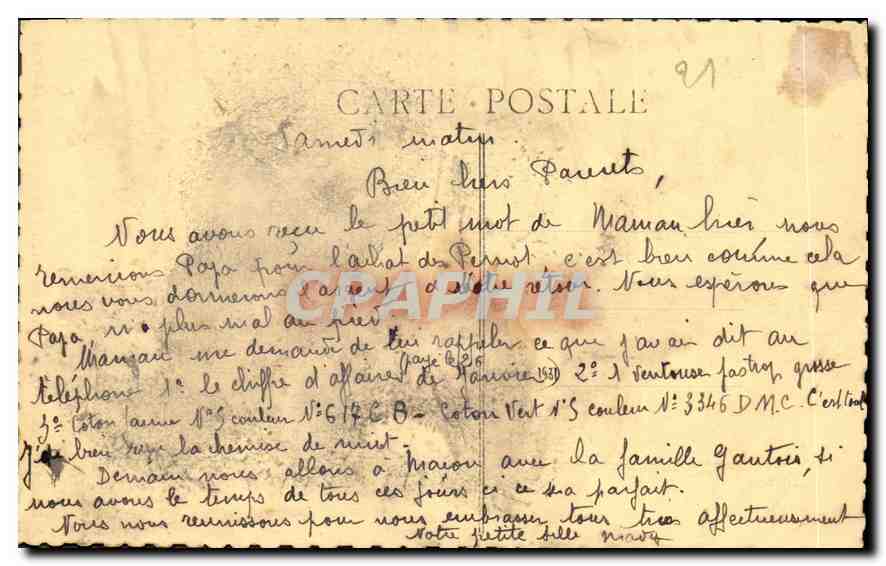 21
CARTE POSTALE
Samedi matin.
Bien chers Parents,
Nous avons reçu le petit mot de Maman hier nous
remercions Papa pour l'achat des Pernot c'est bien comme cela
nous vous donnerons l'argent à votre retour. Nous espérons que
Papa n'a plus mal au pied.
Maman me demande de lui rappeler ce que j'avais dit au
(paye le 26
téléphone 1º le chiffre d'affaires de Janvier 1931) 2º 1 Ventouse pas trop grosse
3º Coton jaune Nº 5 couleur Nº 617 C B - Coton Vert Nº 5 couleur Nº 3345 D M C. C'est tout
J'ai bien reçu la chemise de nuit.
Demain nous allons à Macon avec la famille Gautois, si
nous avons le temps de tous ces jours ci ce sera parfait.
Nous nous réunissons pour vous embrasser tous très affectueusement
Votre petite fille Mady
CPAPHIL